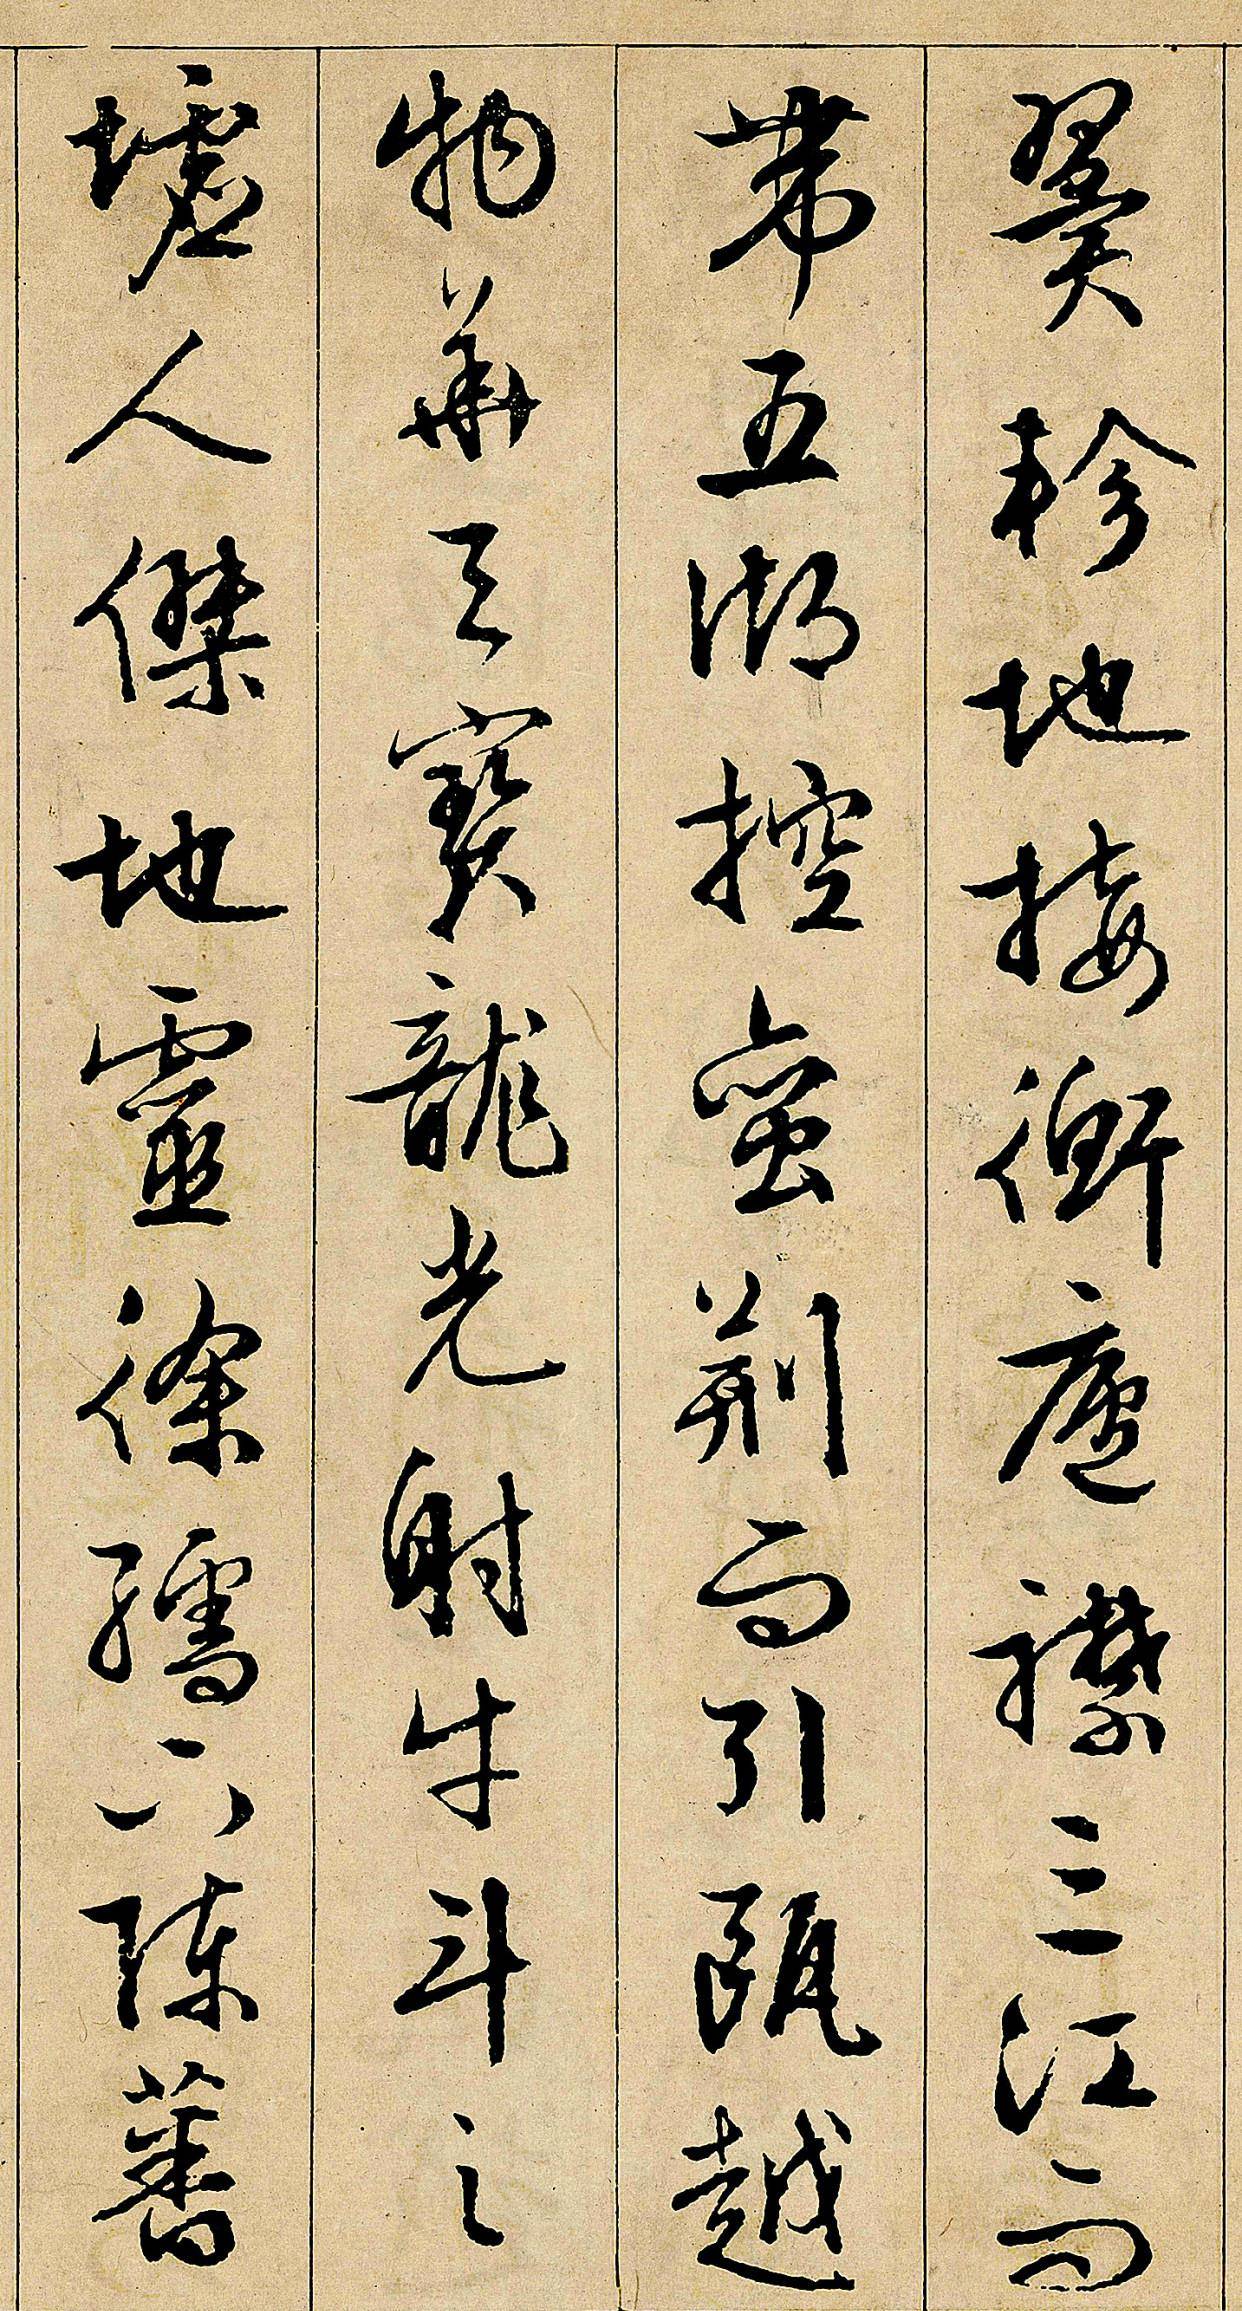 翼軫地接衡廬襟三江而
帶五湖控蠻荊而引甌越
物華天寶龍光射牛斗之
墟人傑地靈徐孺下陳蕃